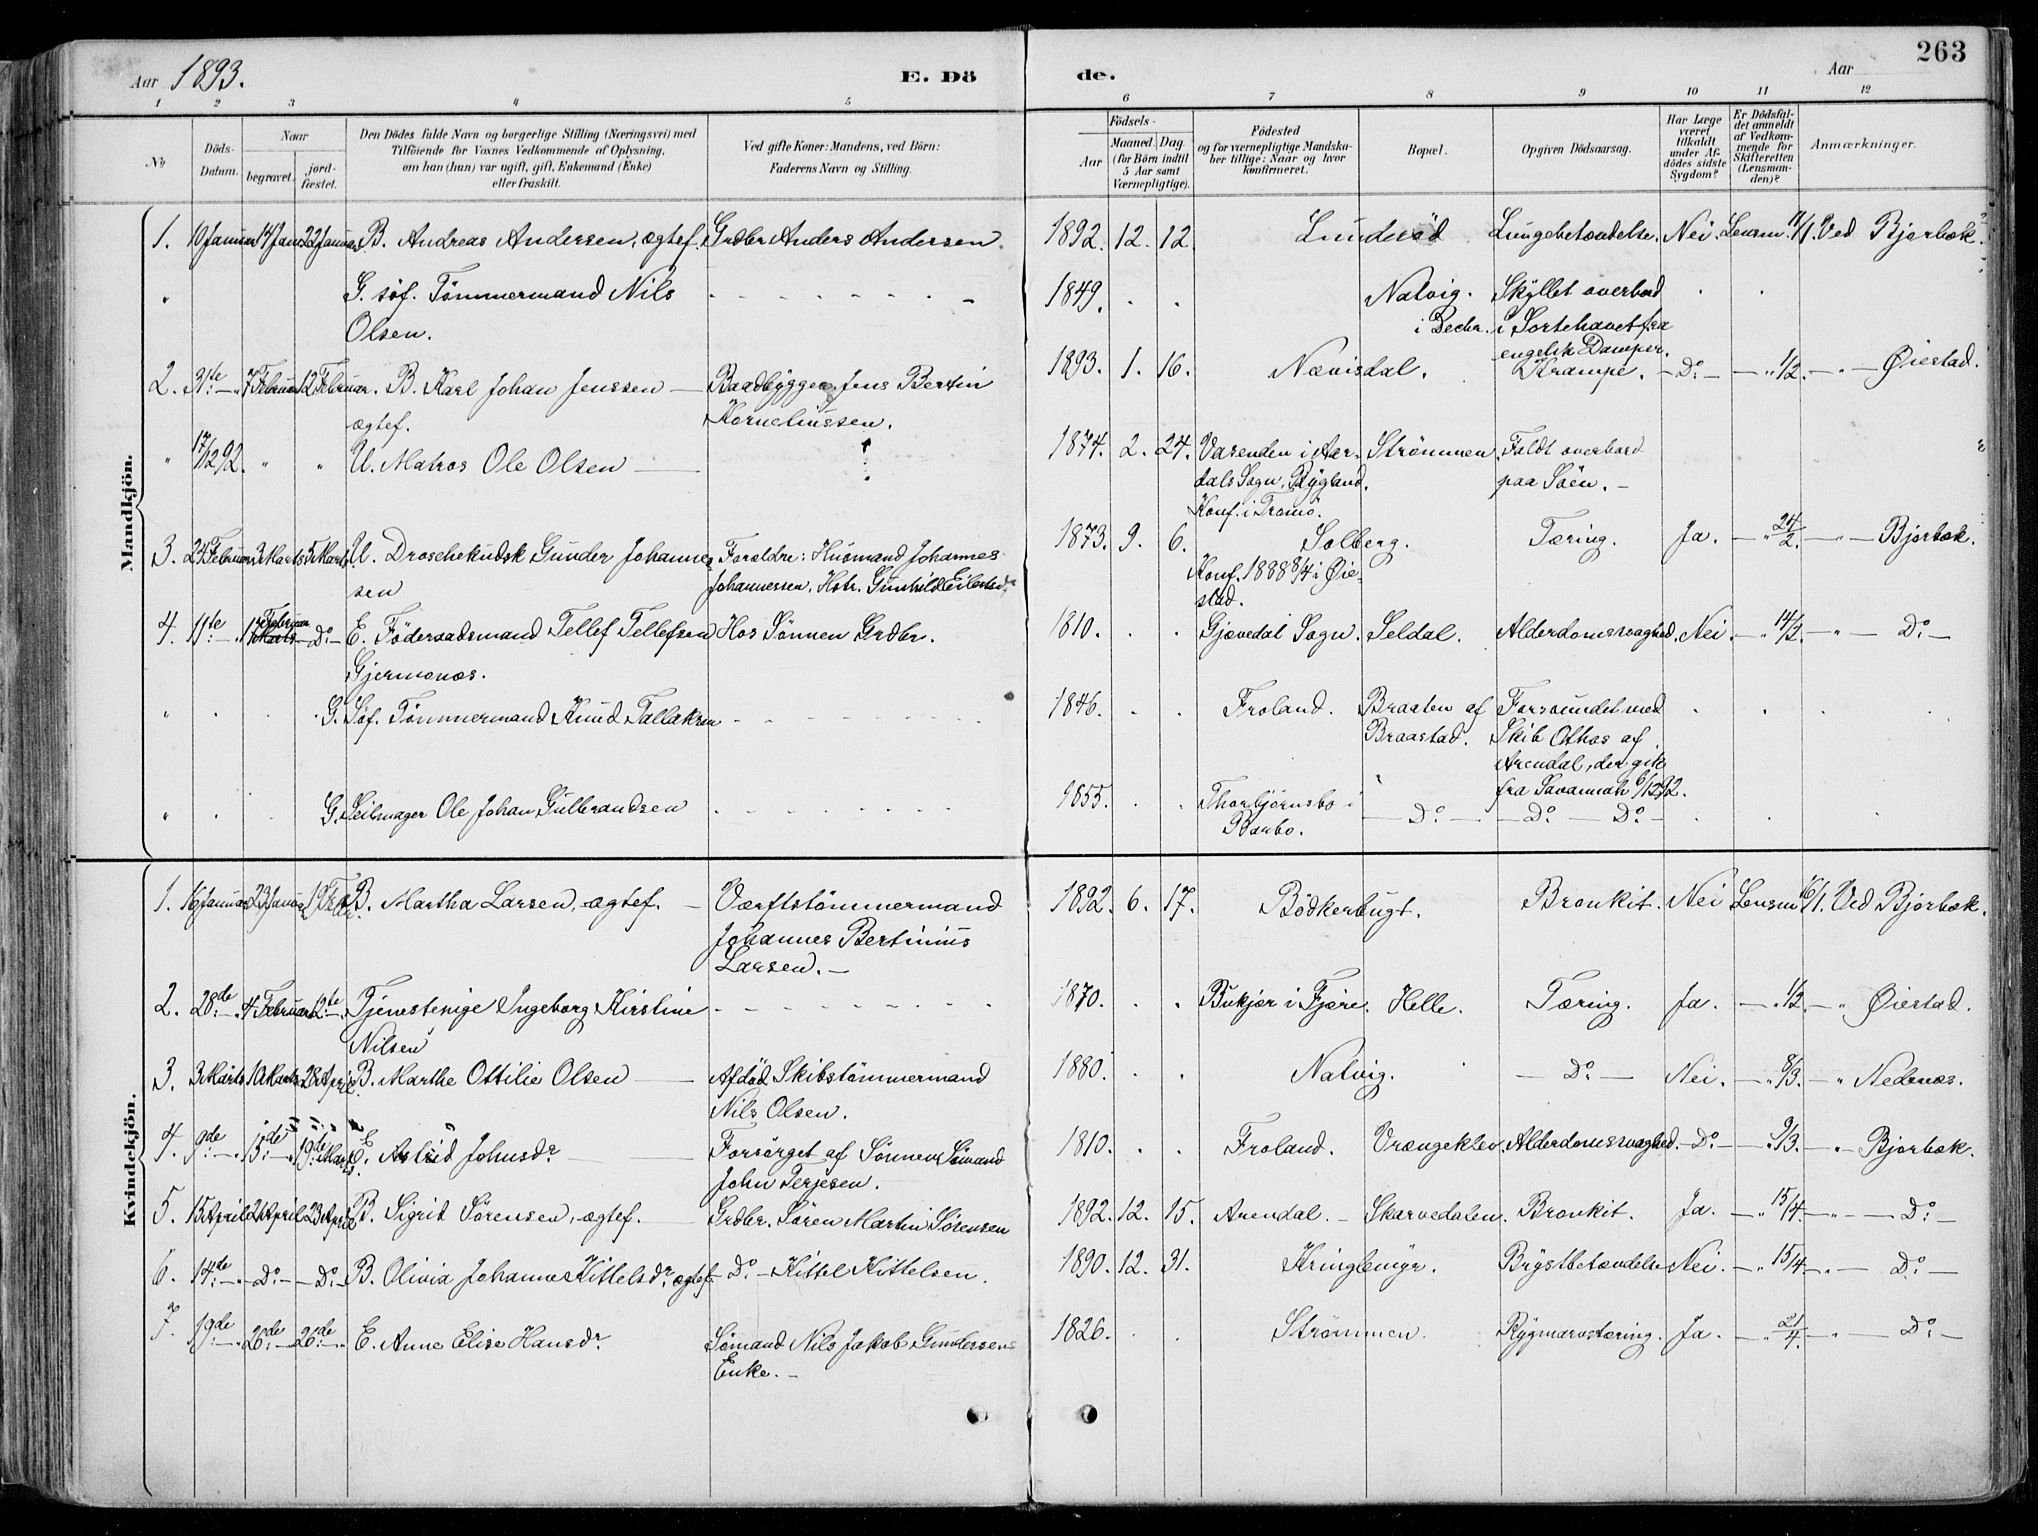 Aar 1893. E. Dö
de. Aar 263
1 2 3 4 5 6 7 8 9 10 11 12
No
Döds-Datum.
Naar
begravet.
jord-fæstet.
Den Dödes fulde Navn og borgerlige Stilling (Næringsvei) med
Tilföiende for Voxnes Vedkommende af Oplysning,
om han (hun) var ugift, gift, Enkemand (Enke)
eller fraskilt.
Ved gifte Koner: Mandens, ved Börn:
Faderens Navn og Stilling.
Födsels-
Aar
Maaned. Dag.
(for Börn indtil
5 Aar samt
Værnepligtige).
Födested
og for værnepligtige Mandska-
ber tillige: Naar og hvor
konfirmeret.
Bopæl.
Opgiven Dödsaarsag.
Har Læge
været
tilkaldt
under Af-
dödes sidste
Sygdom?
Er Dödsfal-
det anmeldt
af Vedkom-
mende for
Skifteretten
(Lensman-
den)?
Anmærkninger.
Mandkjön.
1. 10 Januar 14 Jan 22 Januar B. Andreas Andersen, ægtef. Grdbr Anders Andersen. 1892. 12. 12. Lunderöd Lungebetændelse. Nei. Lensm. 11/1. Ved Bjorbæk.
" G. söf. Tömmermand Nils
Olsen. 1849. Natvig. i Decbr. Skyllet overbord
i Sortehavet fra
engelsk Damper.
2. 31te 7 Februar 12 Februar. B. Karl Johan Jenssen —
ægtef. Baadbygger Jens Bertin
Korneliussen. 1893. 1. 16. Nævisdal. Krampe. — Do — " 1/2. — " — Øiestad.
" 17/12 92. " " U. Matros Ole Olsen — 1874. 2. 24. Vasenden i Aar-
dals Sogn, Rygland.
Konf. i Tromö. Strömmen. Faldt overbord
paa Söen. —
3. 24 Februar 3 Marts 5 Marts U. Droschekudsk Gunder Johannes-
sen Forældre: Husmand Johannes
Johannessen, Hstr. Gunhild Eilertsdr. 1873. 9. 6. Solberg.
Konf. 1888 8/4 i Øie-
stad. Tæring. Ja. — " 24/2. — " — Bjorbæk.
4. 11te 17 Februar Marts — Do — E. Föderaadsmand Tellef Tellefsen
Gjermenæs. Hos Sönnen Grdbr. 1810. Gjævedal Sogn. Seldal. Alderdomssvaghed. Nei. — " 14/2. — " — Do —
" G. Söf. Tömmermand Knud Tallaksen 1846. Froland. Braaten af
Braastad. Forsvundet med
Skib Othos af
Arendal, der gik
fra Savannah 6/12 92.
" G. Seilmager Ole Johan Gulbrandsen 1855. Thorbjörnsbo i
Barbo. — Do — — Do — Do —
Kvindekjön.
1. 16 Januar 23 Januar 19 Febr. B. Martha Larsen, ægtef. — Værftstömmermand
Johannes Bertinius
Larsen. — 1892. 6. 17. Bödkerbugt. Bronkit. Nei Lensm 16/1. Ved Bjorbæk.
2. 28de " 4 Februar 12te — Tjenestepige Ingeborg Kirstine
Nilsen 1870. Bukjær i Fjære. Helle. Tæring. Ja. — " 1/2 — " Øiestad.
3. 3 Marts 10 Marts 23 April. B. Marthe Ottilie Olsen — Afdöd Skibstömmermand
Nils Olsen. 1880. Natvig. — Do — Nei. — " 8/3. — " Nedenæs.
4. 9de " 15de " 19de Marts E. Astrid Johnsdr — Forsörget af Sönnen Sömand
John Terjesen. 1810. Froland. Vrængeklev. Alderdomssvaghed. — Do — " 9/3. — " — Bjorbæk.
5. 15 April 21 April 23 April B. Sigrid Sörensen, ægtef. — Grdbr. Sören Martin Sörensen 1892. 12. 15. Arendal. — Skarvedalen. Bronkit. Ja. — " 15/4. — " — Do —
6. 14de — " — Do — — Do — B. Olivia Johanne Kittelsdr, ægtef. — Do — Kittel Kittelsen. 1890. 12. 31. Kringlemyr. Brystbetændelse Nei. — " 15/4. — " — Do —
7. 19de " 26de — 26de — E. Anne Elise Hansdr. Sömand Nils Jakob Gundersens
Enke. — 1826. Strömmen. Rygmarvstæring. Ja. — " 21/4. — " — Do —